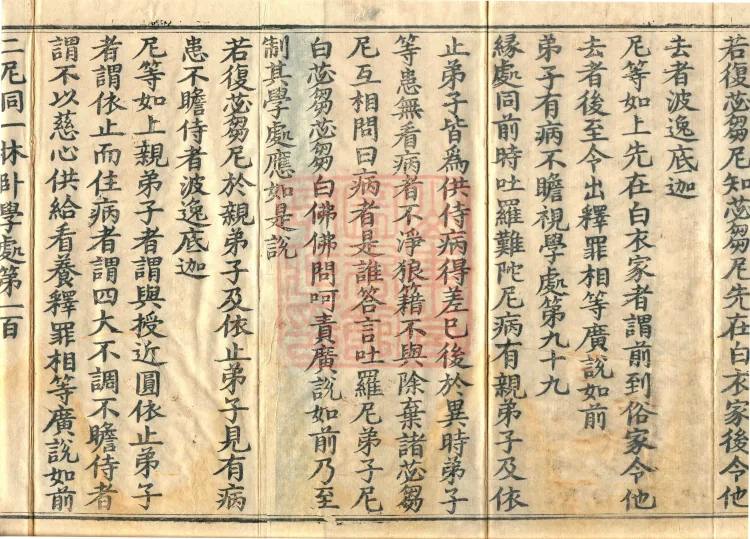 若復苾芻尼知苾芻尼先在白衣家後令他
去者波逸底迦
尼等如上先在白衣家者謂前到俗家令他
去者後至令出釋罪相等廣說如前
弟子有病不瞻視學處第九十九
緣處同前時吐羅難陀尼病有親弟子及依
止弟子皆為供侍病得差已後於異時弟子
等患無看病者不淨狼籍不與除棄諸苾芻
尼互相問曰病者是誰答言吐羅尼弟子尼
白苾芻苾芻白佛佛問呵責廣說如前乃至
制其學處應如是說
若復苾芻尼於親弟子及依止弟子見有病
患不瞻侍者波逸底迦
尼等如上親弟子者謂與授近圓依止弟子
者謂依止而住病者謂四大不調不瞻侍者
謂不以慈心供給看養釋罪相等廣說如前
二尼同一牀卧學處第一百